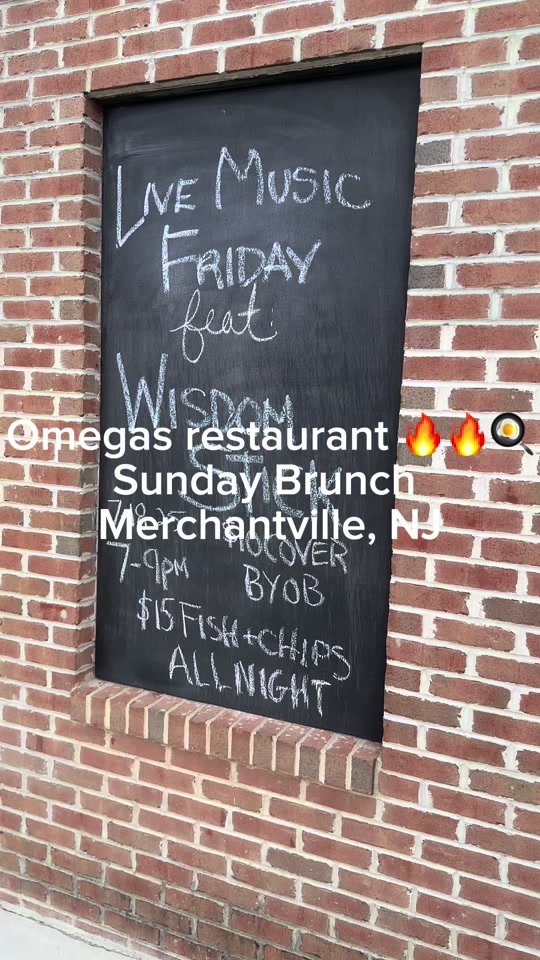 LIVE MUSIC
FRIDAY
feat
WISDOM
Omegas restaurant 🔥🔥🍳
Sunday Brunch
Merchantville, NJ
NO COVER
7-9PM
BYOB
$15 FISH + CHIPS
ALL NIGHT